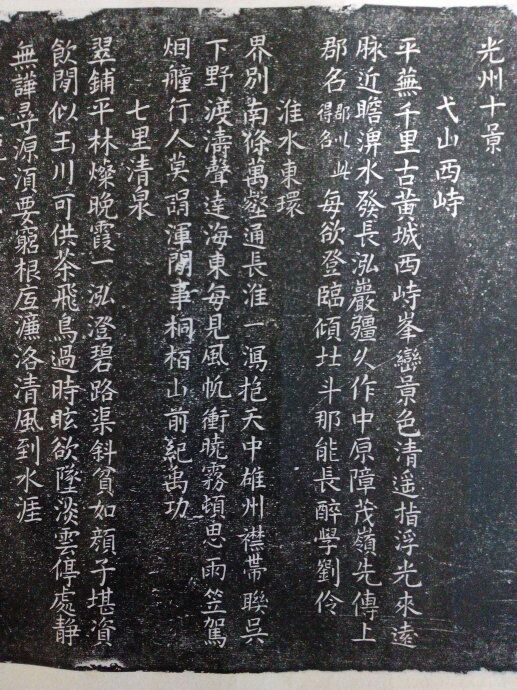 光州十景
弋山西峙
平蕪千里古黃城西峙峯巒景色清遥指浮光來遠
脉近瞻淠水發長泓嚴疆久作中原障茂嶺先傳上
郡名郡以此得名每欲登臨傾北斗那能長醉學劉伶
淮水東環
界別南條萬壑通長淮一瀉抱天中雄州襟帶聯吳
下野渡濤聲達海東每見風帆衝曉霧頓思雨笠駕
烟艟行人莫詡渾閒事桐栢山前紀禹功
七里清泉
翠鋪平林燦晚霞一泓澄碧路渠斜貧如顏子堪資
飲閒似玉川可供茶飛鳥過時眩欲墜淡雲停處静
無譁尋源須要窮根底濂洛清風到水涯